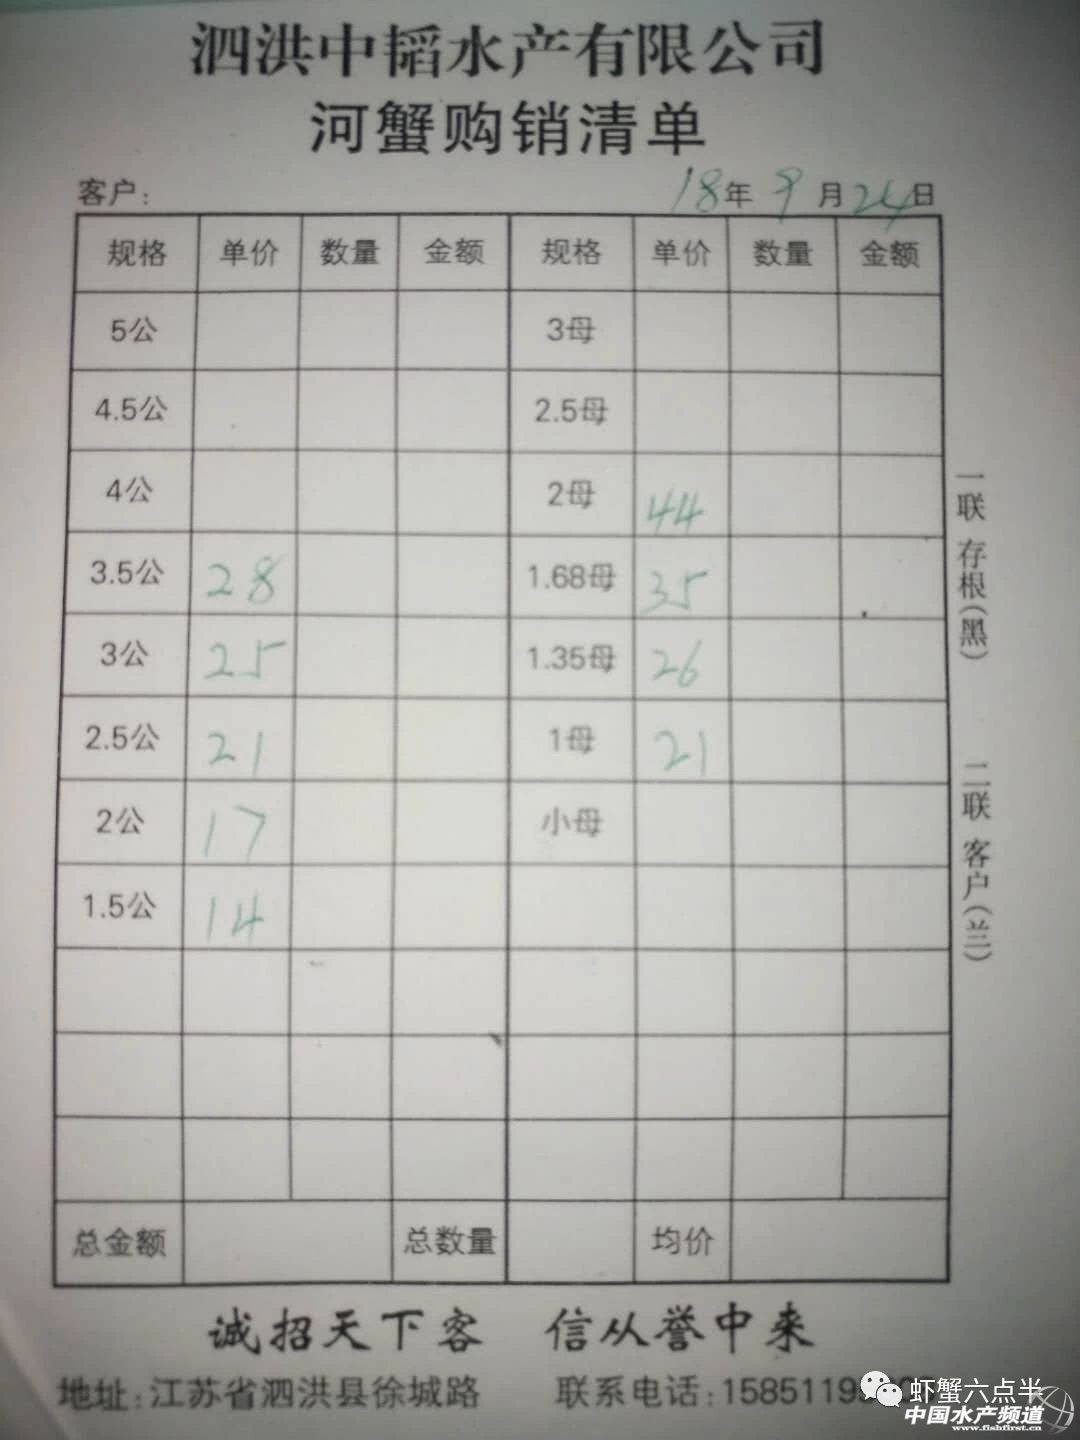 泗洪中韬水产有限公司
河蟹购销清单
客户: 18年9月24日
规格 单价 数量 金额 规格 单价 数量 金额
5公 3母
4.5公 2.5母
4公 2母 44
3.5公 28 1.68母 35
3公 25 1.35母 26
2.5公 21 1母 21
2公 17 小母
1.5公 14
总金额 总数量 均价
一联 存根(黑)
二联 客户(兰)
诚招天下客 信从誉中来
地址:江苏省泗洪县徐城路 联系电话:
虾蟹六点半
中国水产频道
www.fishfirst.cn